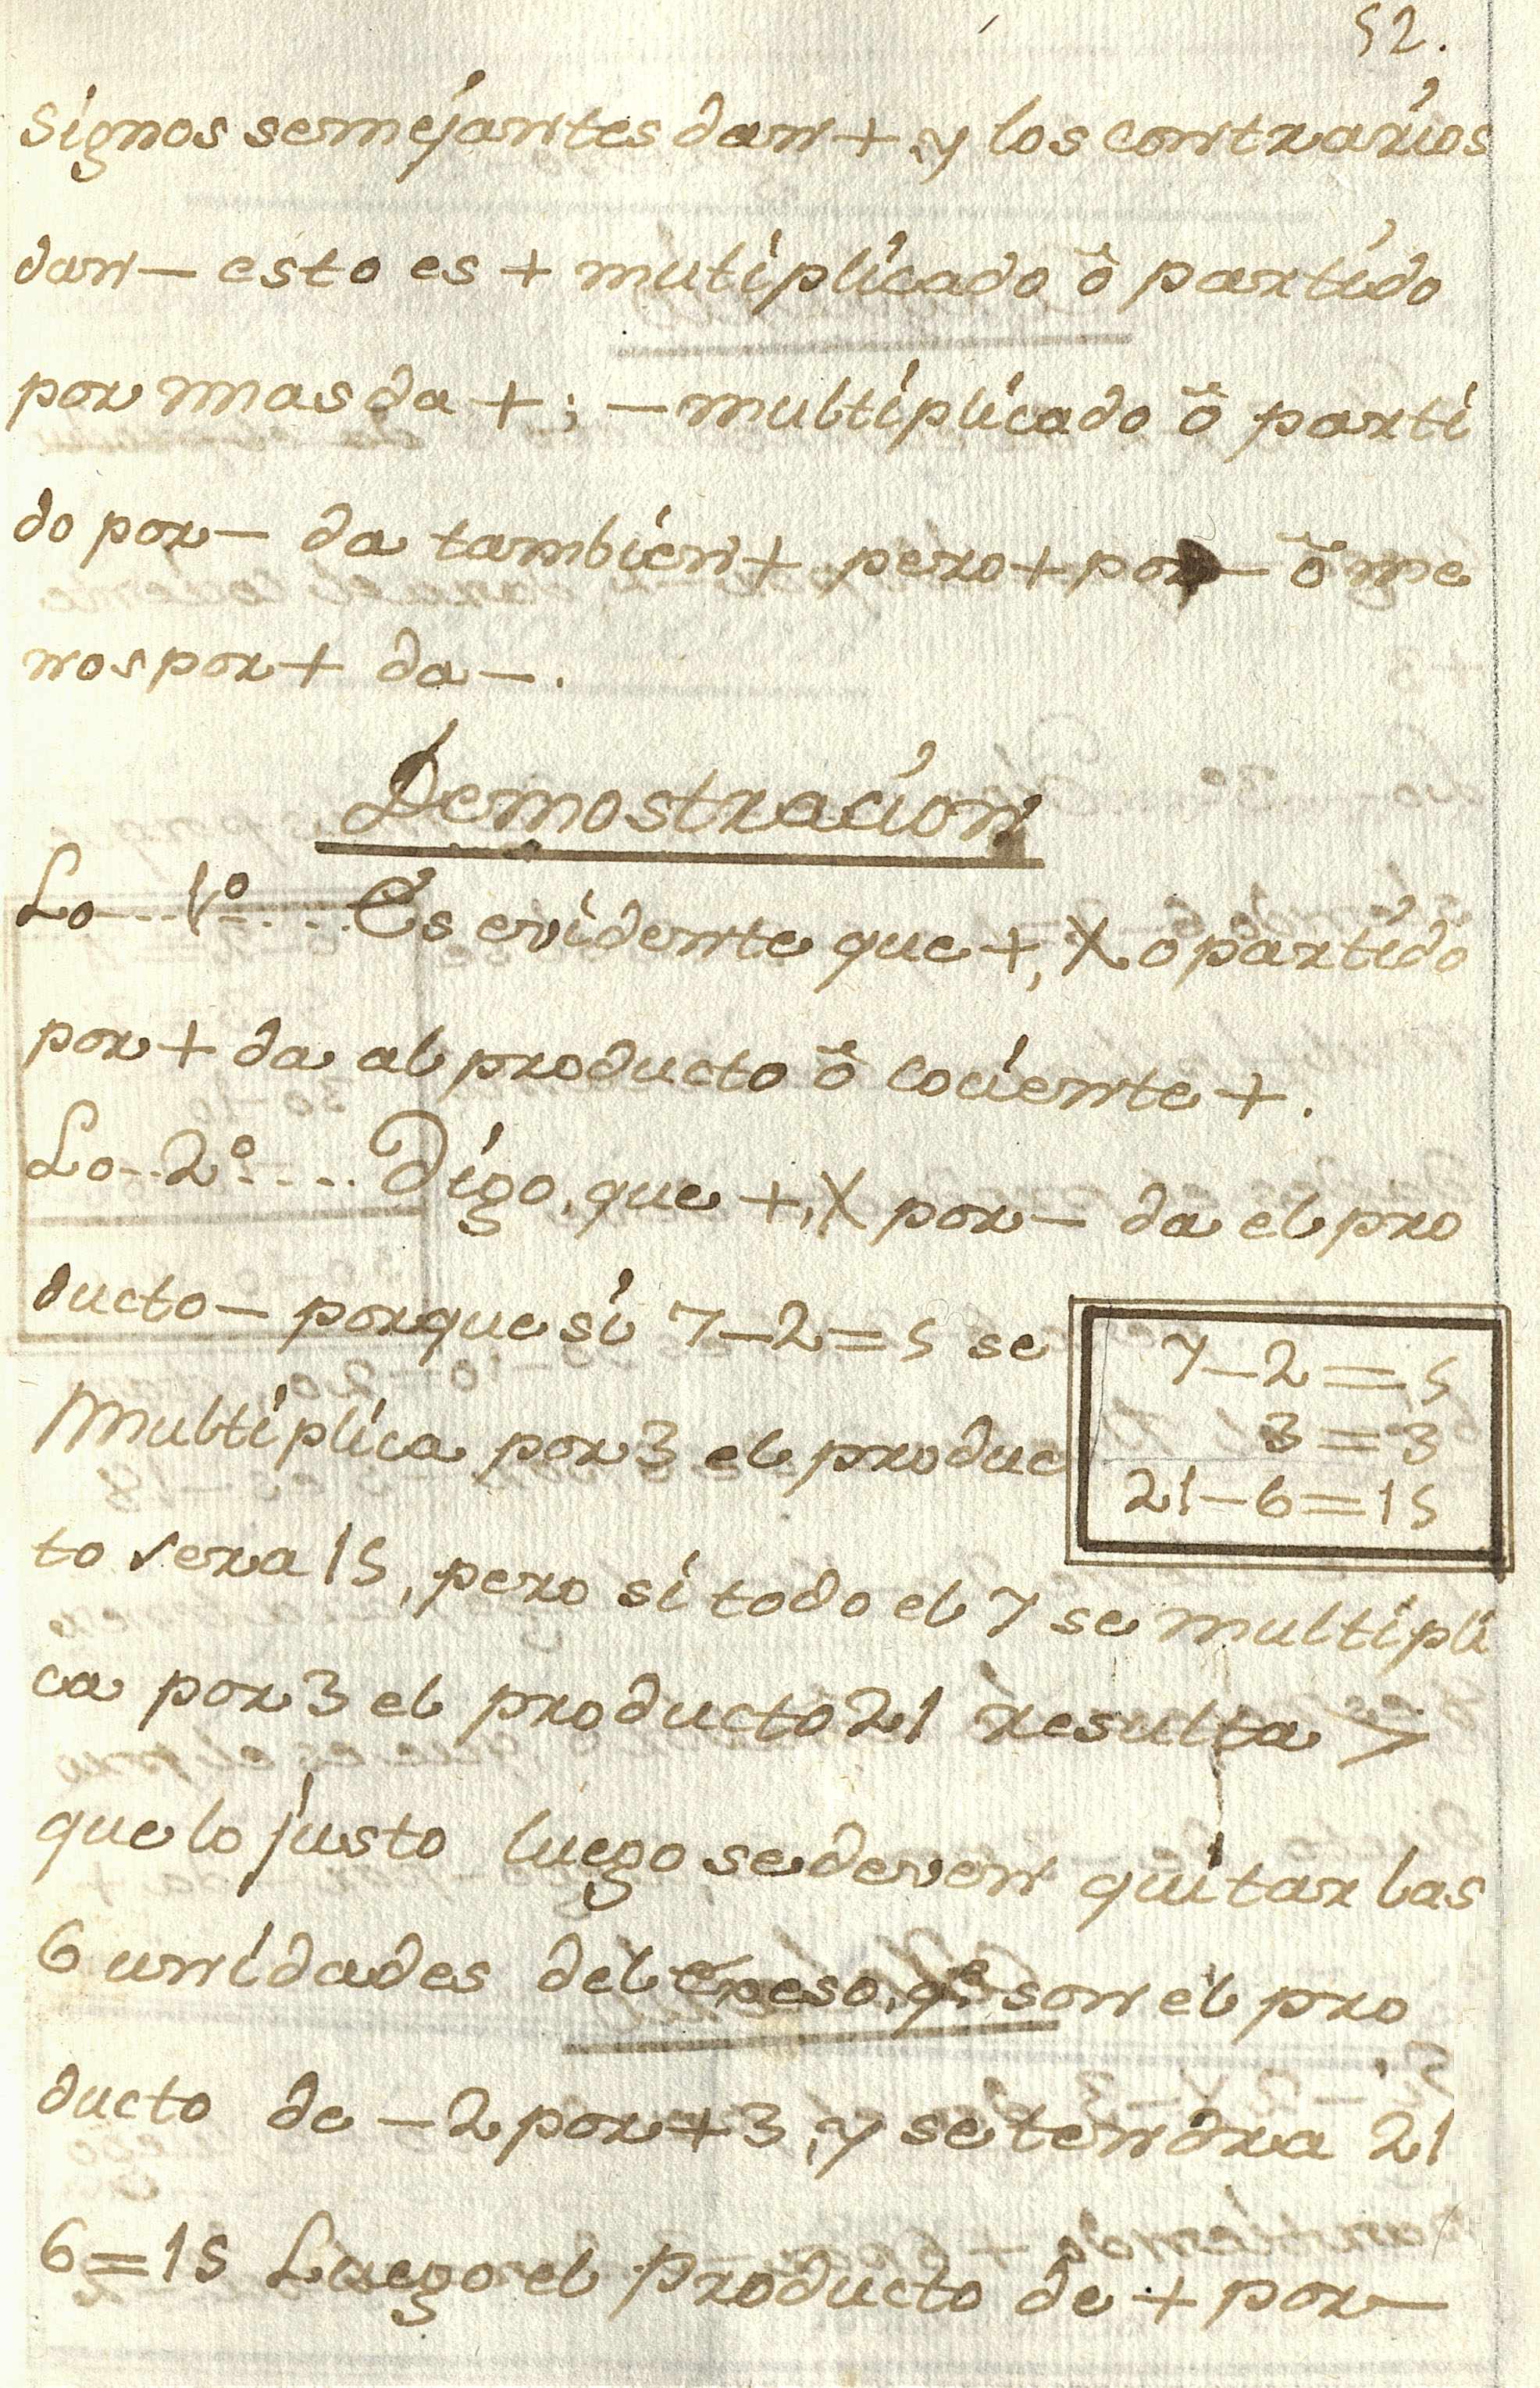 52.
signos semejantes dan + y los contrarios
dan — esto es + mutiplicado ô partido
por mas da +; — multiplicado ô parti
do por — da tambien + pero + por — ô me
nos por + da —.
Demostracion
Lo....1º.... Es evidente que +, X o partido
por + da al producto ô cociente +.
Lo..2º.... Digo, que +, X por — da el pro
ducto — porque si 7—2=5 se
Multiplica por 3 el produc
to sera 15, pero si todo el 7 se multipli
ca por 3 el producto 21 resulta >
que lo justo luego se deven quitar las
6 unidades del exeso, qe. son el pro
ducto de —2 por +3, y se tendra 21
6=15 Luego el Producto de + por —
7—2=5
3=3
21—6=15